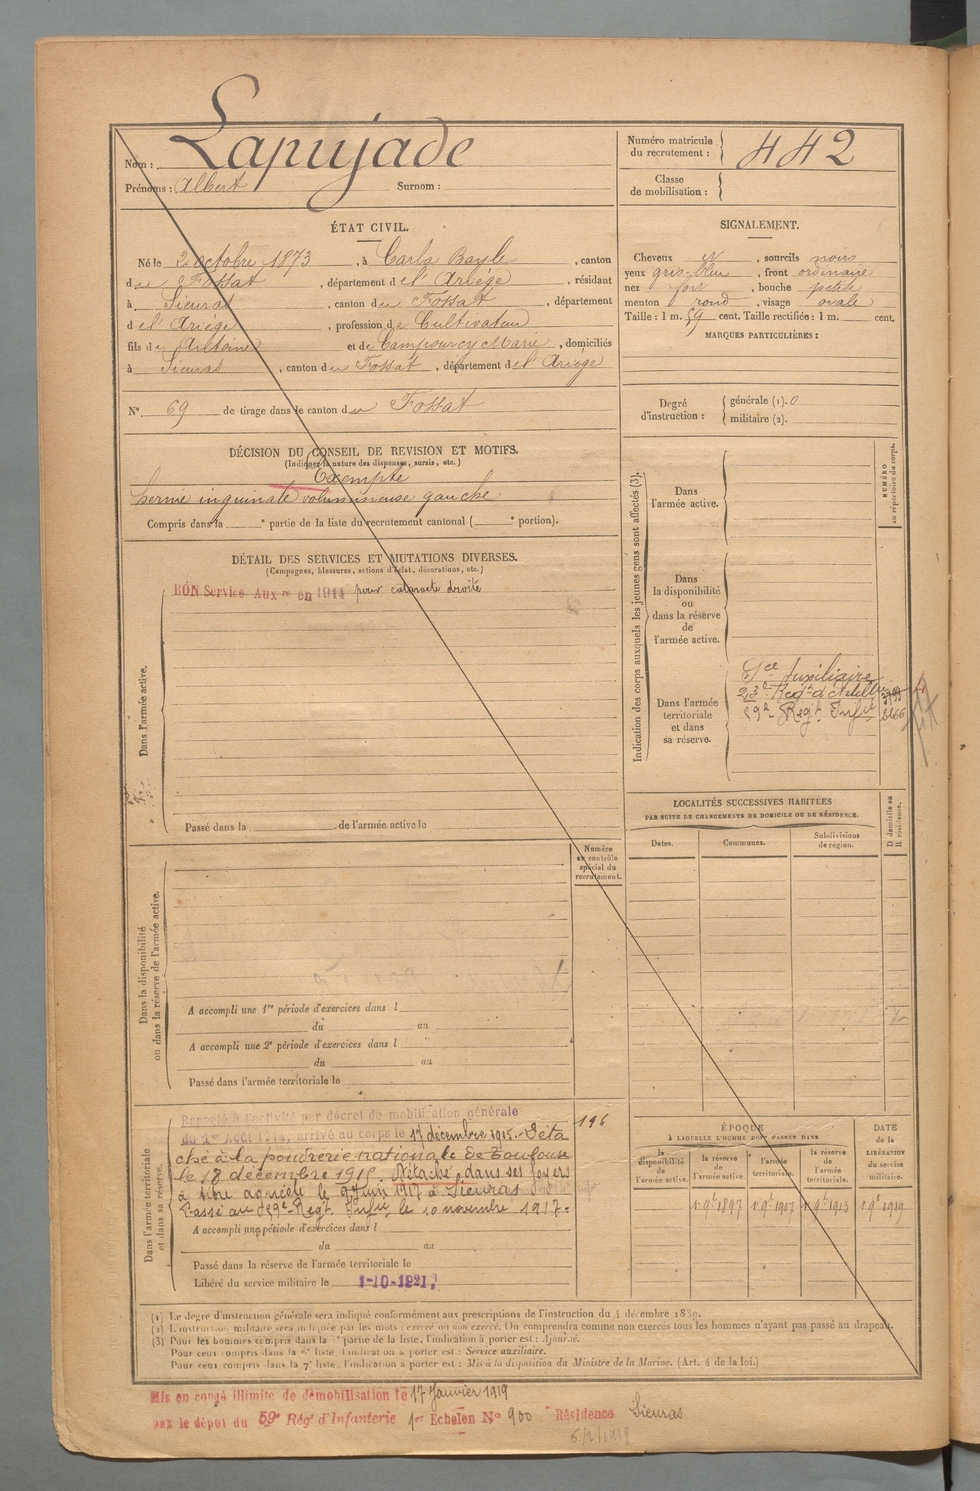 Nom : Lapujade
Prénoms : Albert Surnom :
Numéro matricule du recrutement : 442
Classe de mobilisation :
ÉTAT CIVIL.
Né le 2 octobre 1873, à Carla Bayle, canton
du Fossat, département de l'Ariège, résidant
à Sieuras, canton du Fossat, département
de l'Ariège, profession de Cultivateur
fils de Antoine et de Campourcy Marie, domiciliés
à Sieuras, canton du Fossat, département de l'Ariège
N° 69 de tirage dans le canton du Fossat
SIGNALEMENT.
Cheveux , sourcils noirs
yeux gris-bleu, front ordinaire
nez fort, bouche petite
menton rond, visage ovale
Taille : 1 m. 59 cent. Taille rectifiée : 1 m. cent.
MARQUES PARTICULIÈRES :
Degré d'instruction : générale (1). 0
militaire (2).
DÉCISION DU CONSEIL DE REVISION ET MOTIFS.
(Indiquer la nature des dispenses, sursis, etc.)
Exempté
hernie inguinale volumineuse gauche
Compris dans la e partie de la liste du recrutement cantonal ( e portion).
DÉTAIL DES SERVICES ET MUTATIONS DIVERSES.
(Campagnes, blessures, actions d'éclat, décorations, etc.)
BON Service Auxre en 1914 pour cataracte droite
Dans l'armée active.
Passé dans la de l'armée active le
Indication des corps auxquels les jeunes gens sont affectés (3).
NUMÉRO au répertoire du corps.
Dans l'armée active.
Dans la disponibilité ou dans la réserve de l'armée active.
Dans l'armée territoriale et dans sa réserve.
Sce Auxiliaire
23e Régt d'Artillie
59e Regt Infie 2266
LOCALITÉS SUCCESSIVES HABITÉES
PAR SUITE DE CHANGEMENTS DE DOMICILE OU DE RÉSIDENCE.
Dates. Communes. Subdivisions de région. D domicile ou R résidence.
Numéro au contrôle spécial du recrutement.
Dans la disponibilité ou dans la réserve de l'armée active.
A accompli une 1re période d'exercices dans l
du au
A accompli une 2e période d'exercices dans l
du au
Passé dans l'armée territoriale le
Dans l'armée territoriale et dans sa réserve.
Rappelé à l'activité par décret de mobilisation générale 196
du 1er Août 1914, arrivé au corps le 17 décembre 1915. Déta
ché à la poudrerie nationale de Toulouse
le 18 décembre 1915. Détaché dans ses foyers
à titre agricole le 9 Juin 1917 à Sieuras
Passé au 59e Regt Infie le 10 novembre 1917.
A accompli une période d'exercices dans l
du au
Passé dans la réserve de l'armée territoriale le
Libéré du service militaire le 1-10-1921.
ÉPOQUE
À LAQUELLE L'HOMME DOIT PASSER DANS
la disponibilité de l'armée active. la réserve de l'armée active. l'armée territoriale. la réserve de l'armée territoriale. DATE de la LIBÉRATION du service militaire.
1897 1907 1913 1919
(1) Le degré d'instruction générale sera indiqué conformément aux prescriptions de l'instruction du 4 décembre 1889.
(2) L'instruction militaire sera indiquée par les mots : exercé ou non exercé. On comprendra comme non exercés tous les hommes n'ayant pas passé au drapeau.
(3) Pour les hommes compris dans la partie de la liste, l'indication à porter est : Ajourné.
Pour ceux compris dans la 6e liste, l'indication à porter est : Service auxiliaire.
Pour ceux compris dans la 7e liste, l'indication à porter est : Mis à la disposition du Ministre de la Marine. (Art. 4 de la loi.)
Mis en congé illimité de démobilisation le 17 Janvier 1919
par le dépôt du 59e Régt d'Infanterie 1er Echelon N° 900 Résidence Sieuras